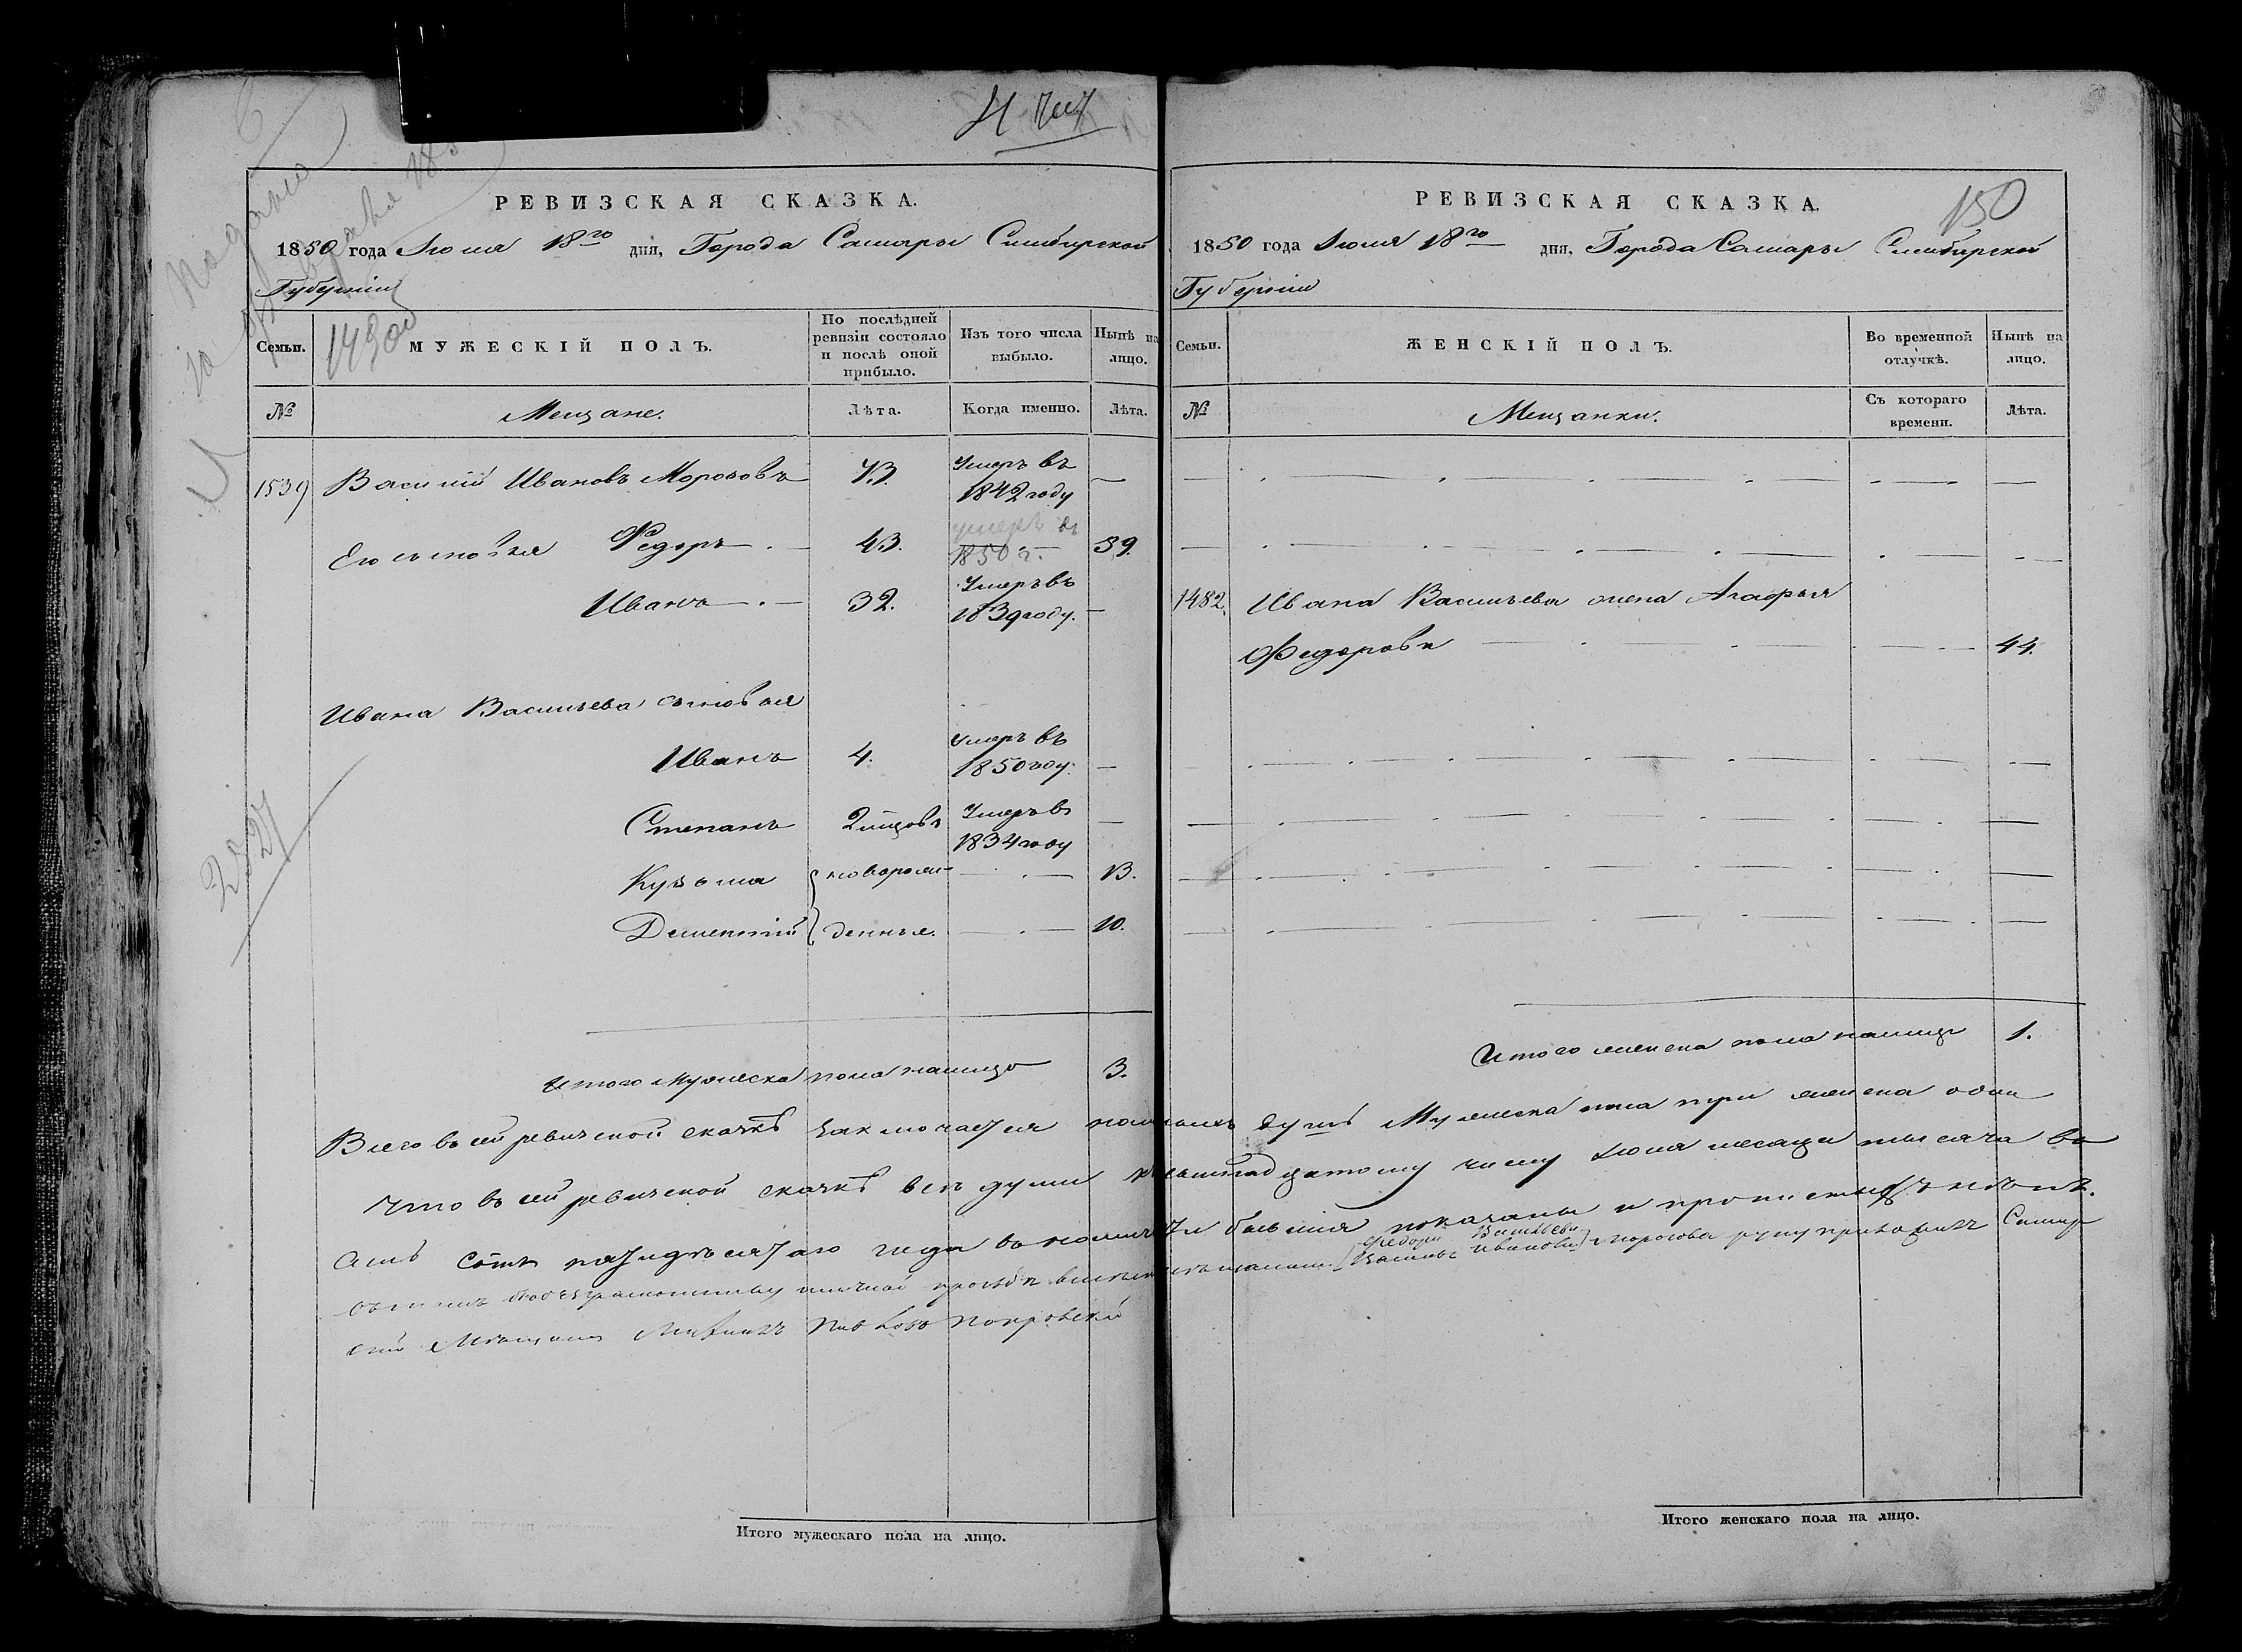 150
РЕВИЗСКАЯ СКАЗКА.
1850 года Июня 18го дня, Города Самары Симбирской
Губернии
Семьи.
МУЖЕСКІЙ ПОЛЪ.
По послѣдней
ревизіи состояло
и послѣ оной
прибыло.
Изъ того числа
выбыло.
Нынѣ на
лицо.
№
Мещане.
Лѣта.
Когда именно.
Лѣта.
1539
Василій Ивановъ Морозовъ
73.
Умеръ въ
1842 году
Его сыновья Федоръ
43.
умеръ въ
1850 г.
39.
Иванъ
32.
Умеръ въ
1839 году.
Ивана Васильева сыновья
Иванъ
4.
Умеръ въ
1850 году.
Степанъ
Умеръ въ
1834 году
Кузьма
новорож-
13.
Дементій
денные.
10.
Итого мужеска пола налицо
3.
РЕВИЗСКАЯ СКАЗКА.
1850 года Июня 18го дня, Города Самары Симбирской
Губернии
Семьи.
ЖЕНСКІЙ ПОЛЪ.
Во временной
отлучкѣ.
Нынѣ на
лицо.
№
Мещанки.
Съ котораго
времени.
Лѣта.
1482.
Ивана Васильева жена Агафья
Федорова
44.
Итого женска пола налицо
1.
Всего въ сей ревизской сказкѣ заключается душъ Мужеска пола три женска одна
Что въ сей ревизской сказкѣ всѣ души к восьмнадцатому числу Июня месяца тысяча во
семь сотъ пятидесятаго года въ наличности бывшія показаны и прописныхъ нѣтъ.
Федоръ Васильевъ
Морозова руку приложилъ Самар
ской Мѣщанинъ Покровскій
Итого мужескаго пола на лицо.
Итого женскаго пола на лицо.
2527